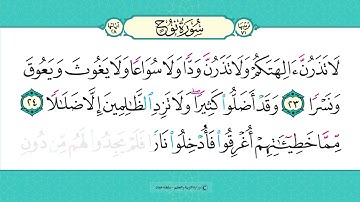 سُورَةُ نُوحٍ
لَا تَذَرُنَّ ءَالِهَتَكُمْ وَلَا تَذَرُنَّ وَدًّا وَلَا سُوَاعًا وَلَا يَغُوثَ وَيَعُوقَ
وَنَسْرًا ٢٣ وَقَدْ أَضَلُّوا۟ كَثِيرًا ۖ وَلَا تَزِدِ ٱلظَّـٰلِمِينَ إِلَّا ضَلَـٰلًا ٢٤
مِّمَّا خَطِيٓـَٔـٰتِهِمْ أُغْرِقُوا۟ فَأُدْخِلُوا۟ نَارًا فَلَمْ يَجِدُوا۟ لَهُم مِّن دُونِ